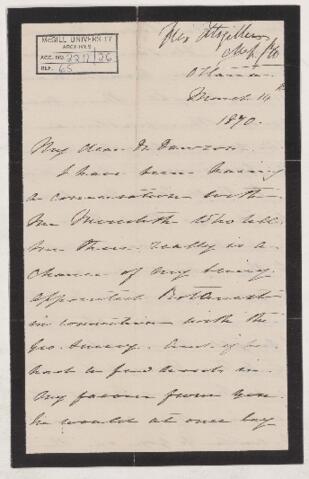 McGILL UNIVERSITY
ARCHIVES
ACC. NO. 2211/26
REF. 65
Ottawa
March 14th
1870.
My dear Dr Dawson
I have been having
a conversation with
Mr Meredith who tells
me there really is a
chance of my being
appointed Botanist
in connection with the
Geo. Survey. and if he
had a few words in
my favour from you
he would at once lay